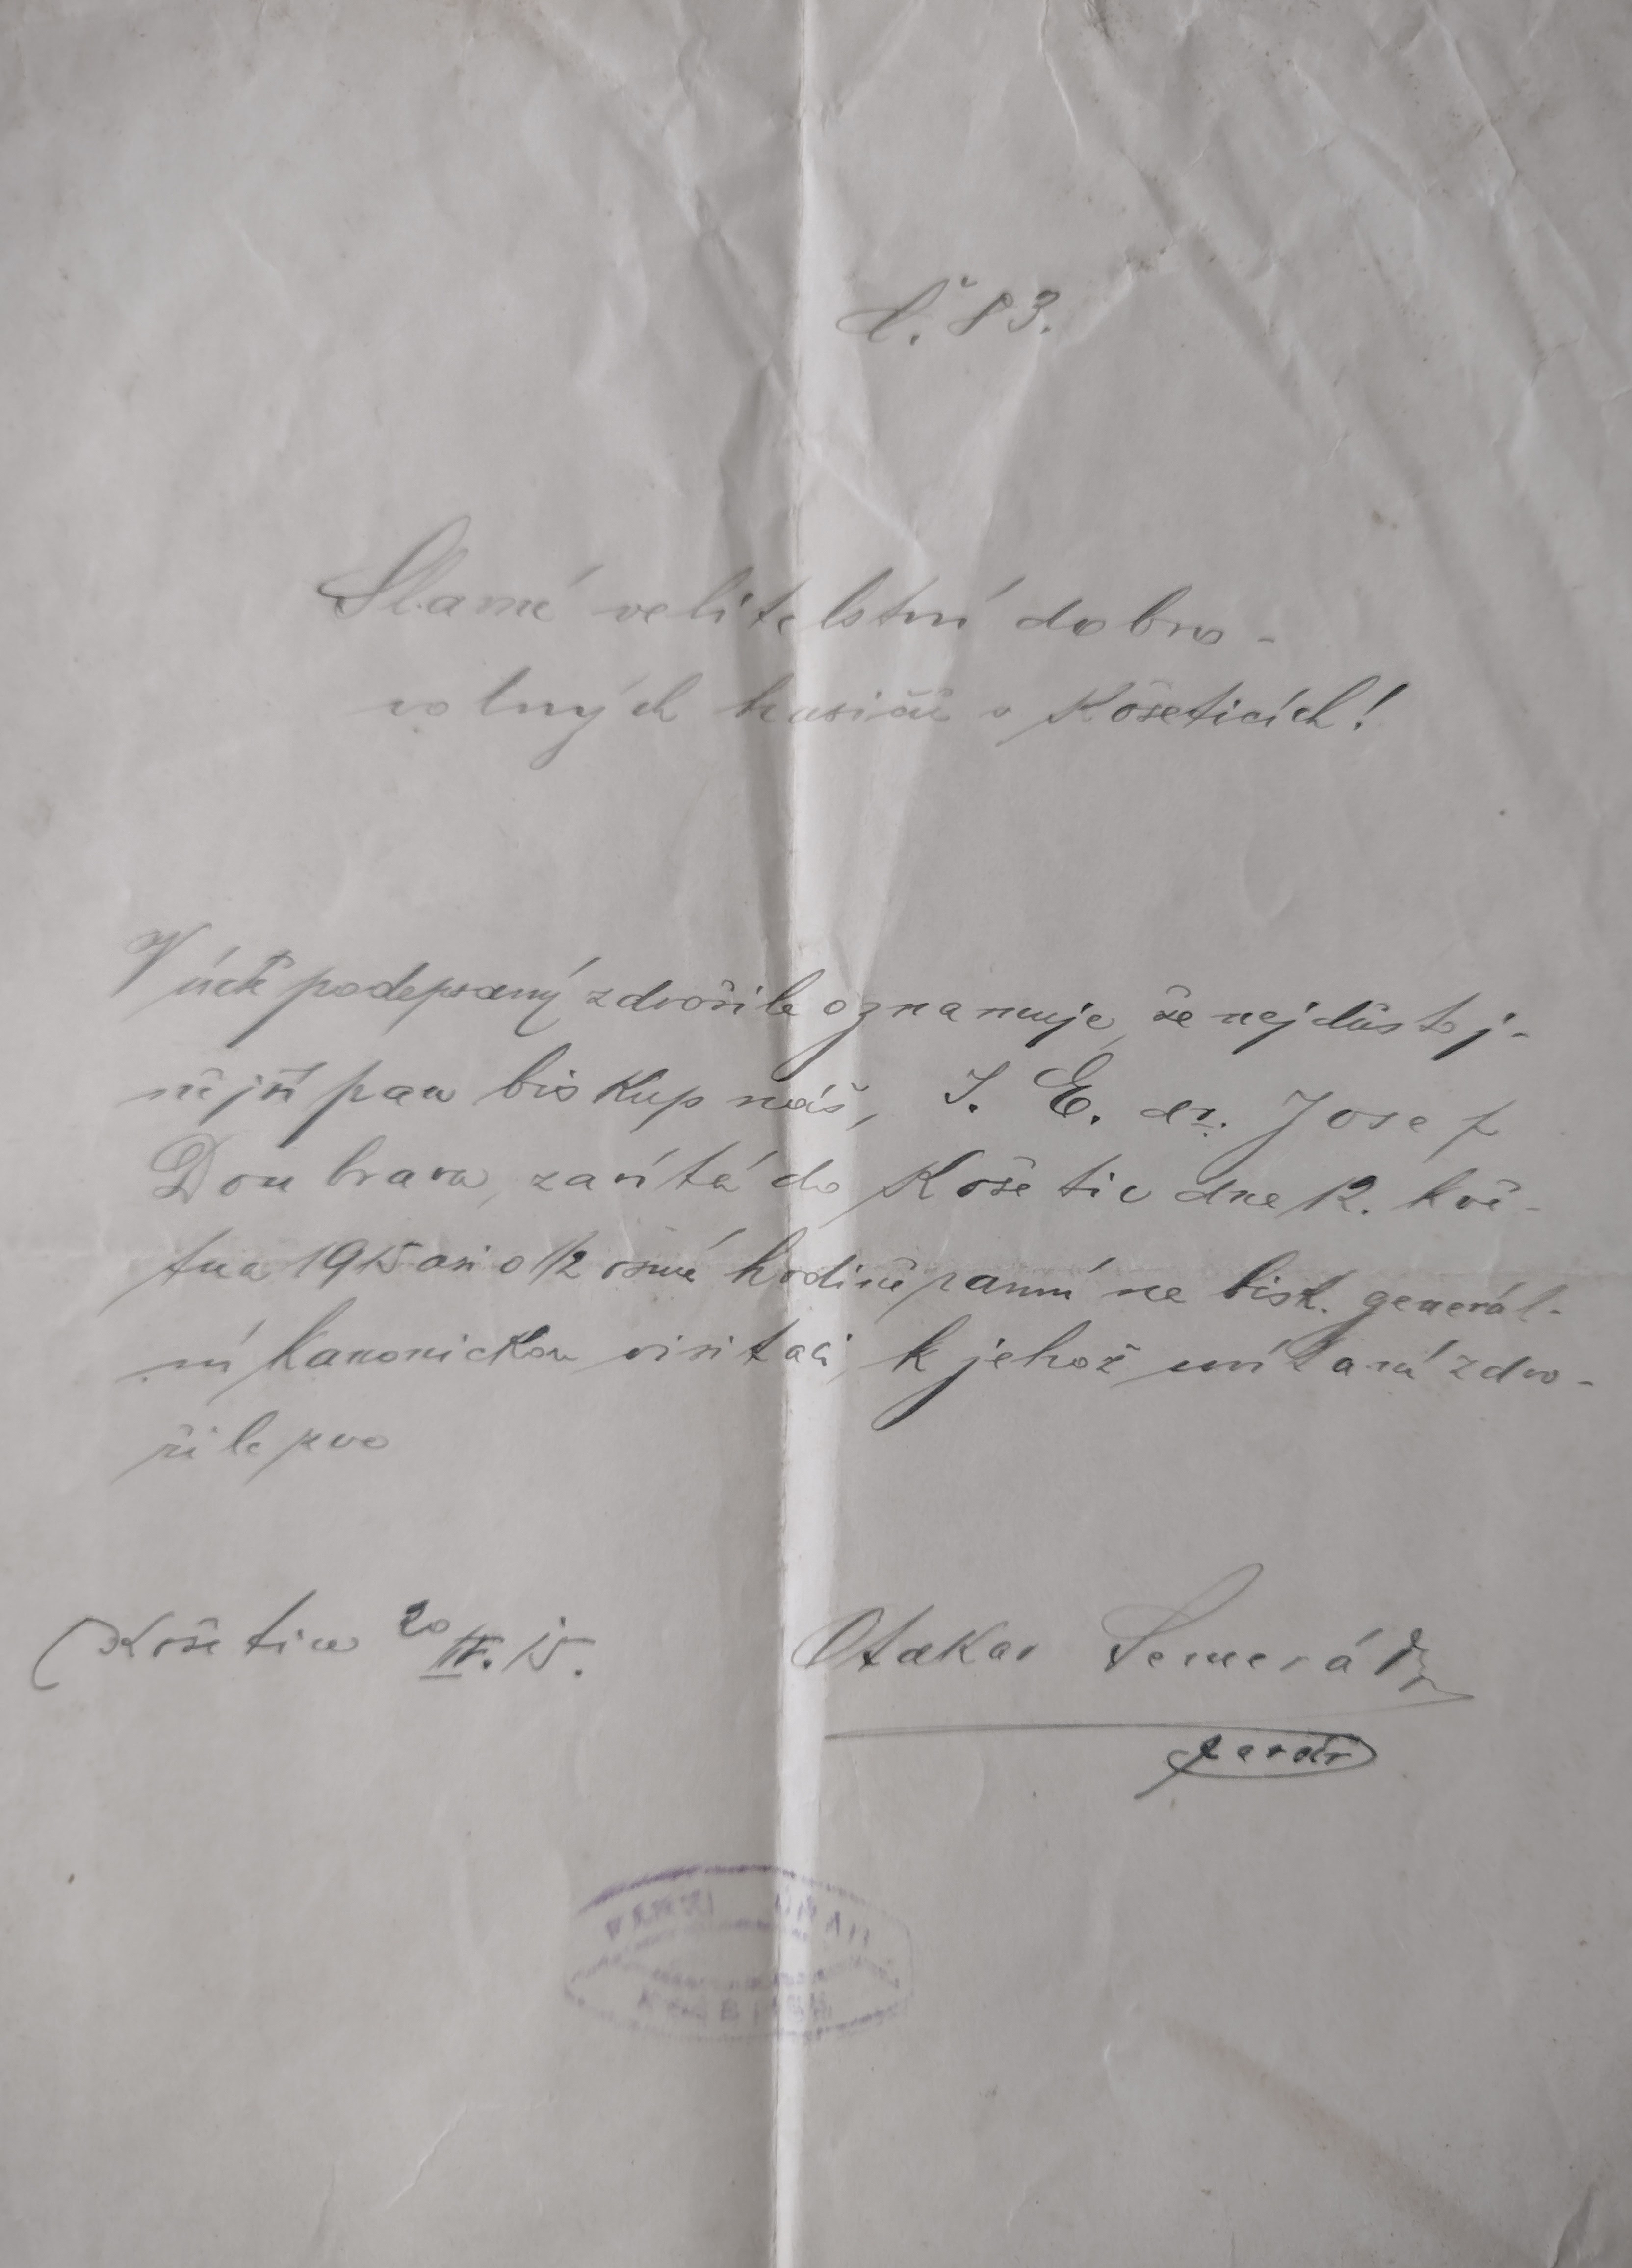 Č. 83.
Slavné velitelství dobro-
volných hasičů v Košeticích!
V úctě podepsaný zdvořile oznamuje, že nejdůstoj-
nější pan biskup náš, J. E. dr. Josef
Doubrava, zavítá do Košetic dne 12. kvě-
tna 1915 asi o 1/2 osmé hodině ranní na bisk. generál-
ní kanonickou visitaci, k jehož uvítání zdvo-
řile zve
Košetice 20/IV. 15.
Otakar Semerád
farář